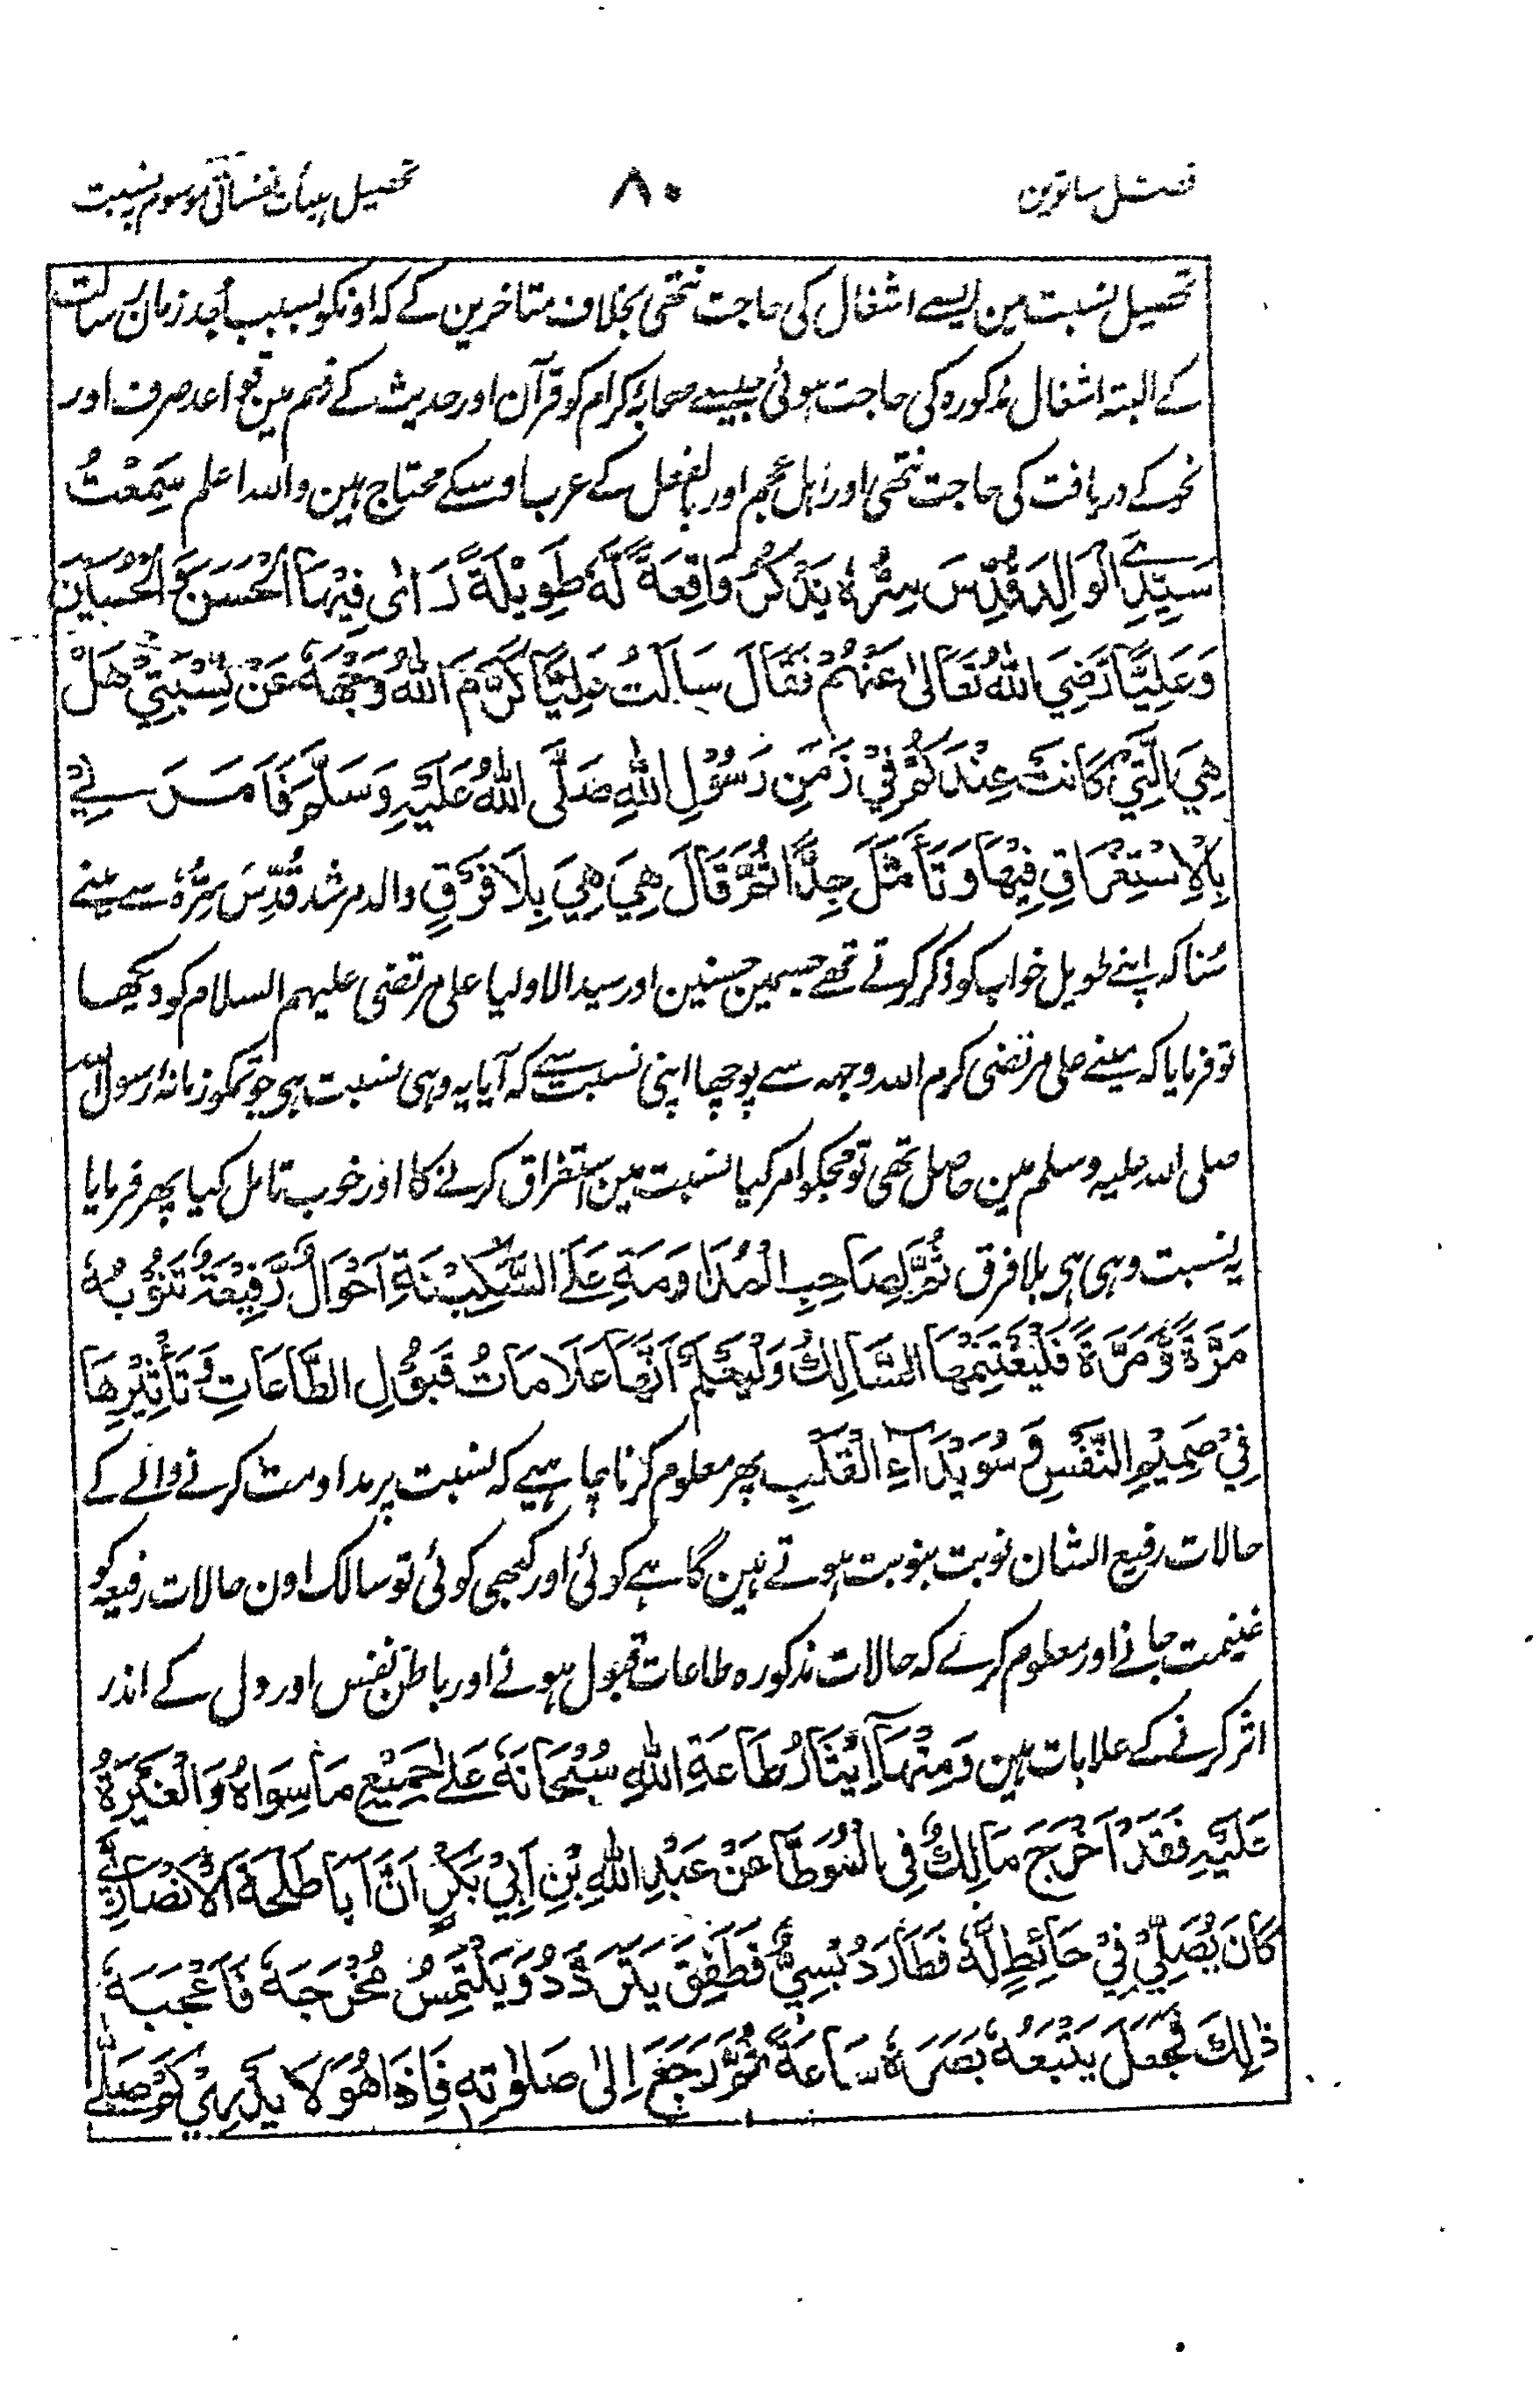 فصل ساتوین
۸۰
تحصیل ہیأت نفسانی موسوم بہ نسبت
تحصیل نسبت مین ایسے اشغال کی حاجت نتھی بخلاف متاخرین کے کہ اونکو بسبب بُعد زمان رسالت
کے البتہ اشغال مذکورہ کی حاجت ہوئی جیسے صحابۂ کرام کو قرآن اور حدیث کے فہم مین قواعد صرف اور
نحو کے دریافت کی حاجت نتھی اور اہل عجم اور بالفعل کے عرب اوسکے محتاج ہین واللہ اعلم سَمِعْتُ
سَيِّدِي الْوَالِدَ قُدِّسَ سِرُّهٗ يَذْكُرُ وَاقِعَةً لَّهٗ طَوِيْلَةً رَاٰى فِيْهَا الْحَسَنَ وَالْحُسَيْنَ
وَعَلِيًّا رَضِيَ اللّٰهُ تَعَالٰى عَنْهُمْ فَقَالَ سَاَلْتُ عَلِيًّا كَرَّمَ اللّٰهُ وَجْهَهٗ عَنْ نِسْبَتِيْ هَلْ
هِيَ الَّتِيْ كَانَتْ عِنْدَكُمْ فِيْ زَمَنِ رَسُوْلِ اللّٰهِ صَلَّى اللّٰهُ عَلَيْهِ وَسَلَّمَ فَاَمَرَنِيْ
بِالْاِسْتِغْرَاقِ فِيْهَا وَتَاَمَّلَ جِدًّا ثُمَّ قَالَ هِيَ هِيَ بِلَا فَرْقٍ والد مرشد قُدِّسَ سِرُّهٗ سے مینے
سُنا کہ اپنے طویل خواب کو ذکر کرتے تھے جسمین حسنین اور سید الاولیا علی مرتضی علیہم السلام کو دیکھا
تو فرمایا کہ مینے علی مرتضی کرم اللہ وجہہ سے پوچھا اپنی نسبت سے کہ آیا یہ وہی نسبت ہی جو تمکو زمانۂ رسول اللہ
صلی اللہ علیہ وسلم مین حاصل تھی تو مجکو امر کیا نسبت مین استغراق کرنے کا اور خوب تامل کیا پھر فرمایا
یہ نسبت وہی ہی بلا فرق ثُمَّ لِصَاحِبِ الْمُدَاوَمَةِ عَلَى السَّكِيْنَةِ اَحْوَالٌ رَّفِيْعَةٌ تَنُوْبُهٗ
مَرَّةً وَّمَرَّةً فَلْيَغْتَنِمْهَا السَّالِكُ وَلْيَعْلَمْ اَنَّهَا عَلَامَاتُ قَبُوْلِ الطَّاعَاتِ وَتَاْثِيْرِهَا
فِيْ صَمِيْمِ النَّفْسِ وَسُوَيْدَآءِ الْقَلْبِ پھر معلوم کرنا چاہیے کہ نسبت پر مداومت کرنے والے کے
حالات رفیع الشان نوبت بنوبت ہوتے ہین گاہے کوئی اور کبھی کوئی تو سالک اون حالات رفیعہ کو
غنیمت جانے اور معلوم کرے کہ حالات مذکورہ طاعات قبول ہونے اور باطن نفس اور دل کے اندر
اثر کرنے کے علامات ہین وَمِنْهَا اِيْثَارُ طَاعَةِ اللّٰهِ سُبْحَانَهٗ عَلٰى جَمِيْعِ مَا سِوَاهُ وَالْغَيْرَةُ
عَلَيْهِ فَقَدْ اَخْرَجَ مَالِكٌ فِي الْمُوَطَّا عَنْ عَبْدِ اللّٰهِ بْنِ اَبِيْ بَكْرٍ اَنَّ اَبَا طَلْحَةَ الْاَنْصَارِيَّ
كَانَ يُصَلِّيْ فِيْ حَائِطٍ لَّهٗ فَطَارَ دُبْسِيٌّ فَطَفِقَ يَتَرَدَّدُ وَيَلْتَمِسُ مَخْرَجَهٗ فَاَعْجَبَهٗ
ذٰلِكَ فَجَعَلَ يَتْبَعُهٗ بَصَرَهٗ سَاعَةً ثُمَّ رَجَعَ اِلٰى صَلٰوتِهٖ فَاِذَا هُوَ لَا يَدْرِيْ كَمْ صَلّٰى